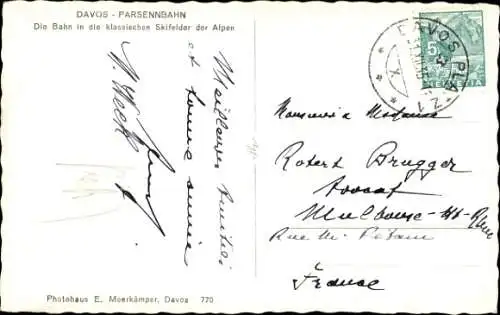 DAVOS - PARSENNBAHN
Die Bahn in die klassischen Skifelder der Alpen
Meilleures Amitiés
et bonne année
DAVOS PLATZ 1
5
HELVETIA
Monsieur et Madame
Robert Brugger
Avocat
Mulhouse-Ht-Rhin
Rue M. Pétain
France
Photohaus E. Meerkämper, Davos 770